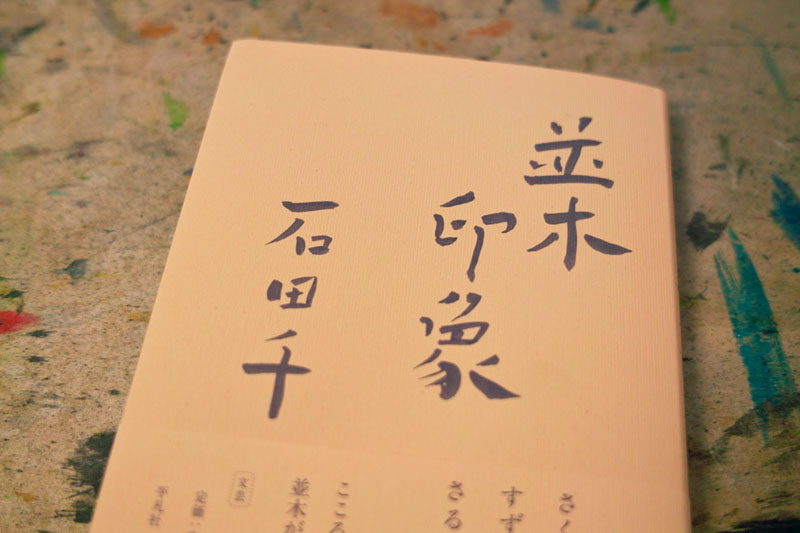 並木
印象
石田千
さく
すず
さる
こころ
並木が
文芸
定価:
平凡社